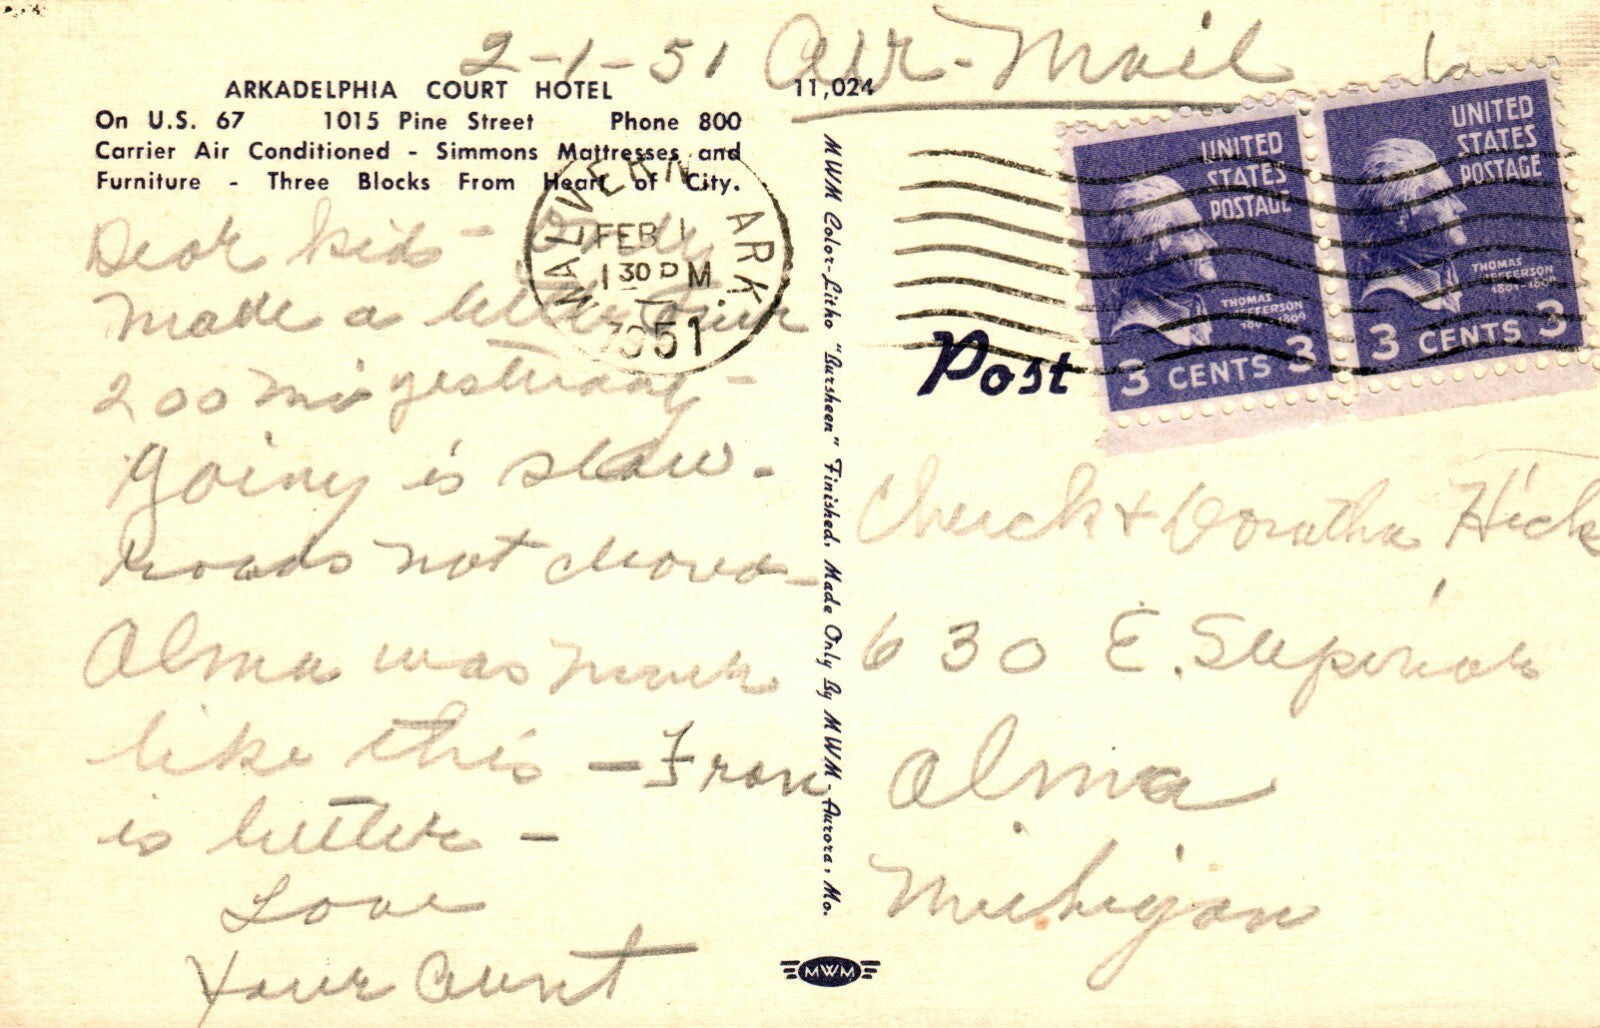 2-1-51 Air-Mail
ARKADELPHIA COURT HOTEL 11,024
On U.S. 67 1015 Pine Street Phone 800
Carrier Air Conditioned - Simmons Mattresses and
Furniture - Three Blocks From Heart of City.
MALVERN ARK.
FEB 1
1 30 PM
1951
Dear kids - Only
made a little over
200 mi yesterday -
Going is slow -
roads not cleared -
Alma was never
like this - Fran
is better -
Love
Your Aunt
MWM Color-Litho "Bursheen" Finished. Made Only By MWM, Aurora, Mo.
UNITED
STATES
POSTAGE
THOMAS
JEFFERSON
1801-1809
3 CENTS 3
UNITED
STATES
POSTAGE
THOMAS
JEFFERSON
1801-1809
3 CENTS 3
Post
Chuck & Doratha Hick
630 E. Superior
Alma
Michigan
MWM